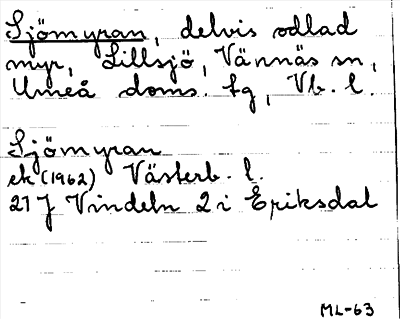 Sjömyran, delvis odlad
myr, Lillsjö, Vännäs sn,
Umeå doms. tg, Vb. l.
Sjömyran
ek (1962) Västerb. l.
21 J Vindeln 2 i Eriksdal
ML-63